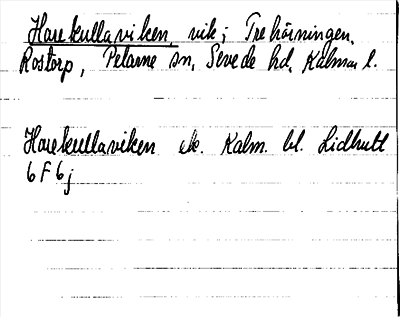 Harekullaviken, vik i Trehörningen,
Rostorp, Pelarne sn, Sevede hd, Kalmar l.
Harekullaviken ek. Kalm. bl. Lidhult
6 F 6 j